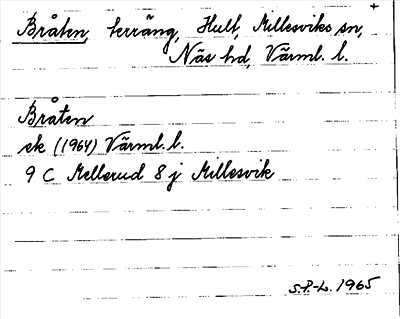 Bråten, terräng, Hult, Millesviks sn,
Näs hd, Värml. l.
Bråten
ek (1964) Värml. l.
9 C Mellerud 8 j Millesvik
S.P.-L. 1965